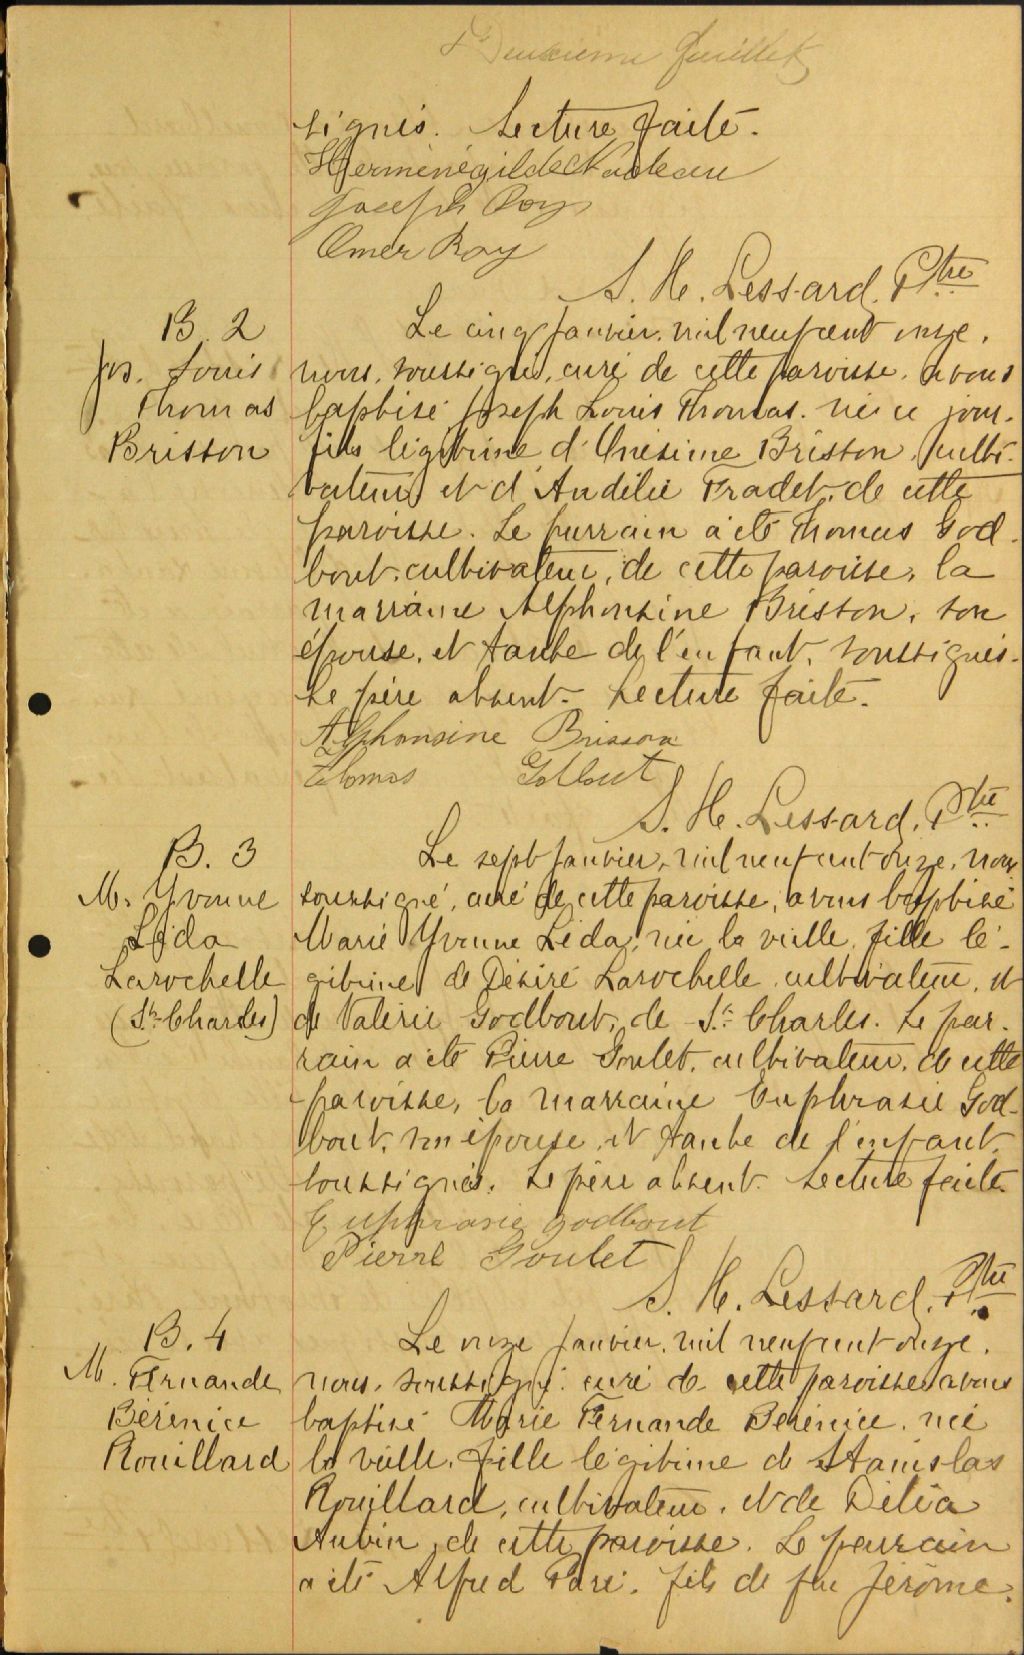 Deuxième feuillet
signés. Lecture faite.
Herménégilde Nadeau
Joseph Roy
Omer Roy
S. H. Lessard, Ptre
B. 2
Jos. Louis
Thomas
Brisson
Le cinq janvier, mil neuf cent onze,
nous, soussigné, curé de cette paroisse, avons
baptisé Joseph Louis Thomas, né ce jour,
fils légitime d'Onésime Brisson, culti-
vateur, et d'Audélie Fradet, de cette
paroisse. Le parrain a été Thomas God-
bout, cultivateur, de cette paroisse, la
marraine Alphonsine Brisson, son
épouse, et tante de l'enfant, soussignés.
Le père absent. Lecture faite.
Alphonsine Brisson
Thomas Golbout
S. H. Lessard, Ptre
B. 3
M. Yvonne
Léda
Larochelle
(St. Charles)
Le sept janvier, mil neuf cent onze, nous
soussigné, curé de cette paroisse, avons baptisé
Marie Yvonne Léda, née la veille, fille lé-
gitime de Désiré Larochelle, cultivateur, et
de Valérie Godbout, de St. Charles. Le par-
rain a été Pierre Goulet, cultivateur, de cette
paroisse, la marraine Euphrasie God-
bout, son épouse, et tante de l'enfant,
soussignés. Le père absent. Lecture faite.
Euphrasie godbout
Pierre Goulet
S. H. Lessard, Ptre
B. 4
M. Fernande
Bérénice
Rouillard
Le onze janvier, mil neuf cent onze,
nous, soussigné, curé de cette paroisse, avons
baptisé Marie Fernande Bérénice, née
la veille, fille légitime de Stanislas
Rouillard, cultivateur, et de Délia
Aubin, de cette paroisse. Le parrain
a été Alfred Paré, fils de feu Jérôme,